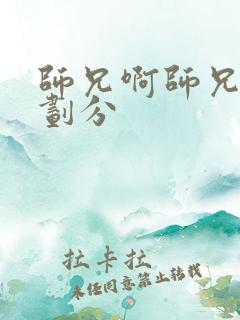 師兄啊師兄
劃分
拉卡拉
未經同意禁止轉載